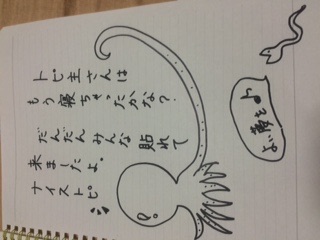 トピ主さんは
もう寝ちゃったかな?
だんだんみんな貼れて
来ましたよ。
ナイストピ
よい夢を♪